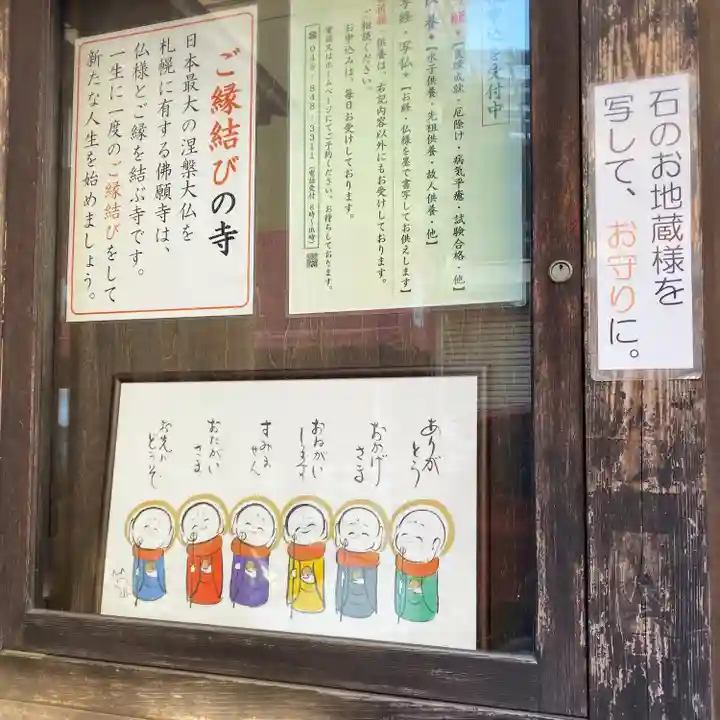 石のお地蔵様を
写して、お守りに。
申込を受付中
【良縁成就・厄除け・病気平癒・試験合格・他】
供養・【水子供養・先祖供養・故人供養・他】
写経・写仏・【お経・仏様を墨で書写してお供えします】
祈願・供養は、右記内容以外にもお受けしております。
ご相談ください。
お申込みは、毎日お受けしております。
電話又はホームページにてご予約ください。お待ちしております。
☎046-848-3311
ご縁結びの寺
日本最大の涅槃大仏を
札幌に有する佛願寺は、
仏様とご縁を結ぶ寺です。
一生に一度のご縁結びをして
新たな人生を始めましょう。
ありが
とう
おかげ
さま
おねがい
します
すみま
せん
おたがい
さま
お先に
どうぞ